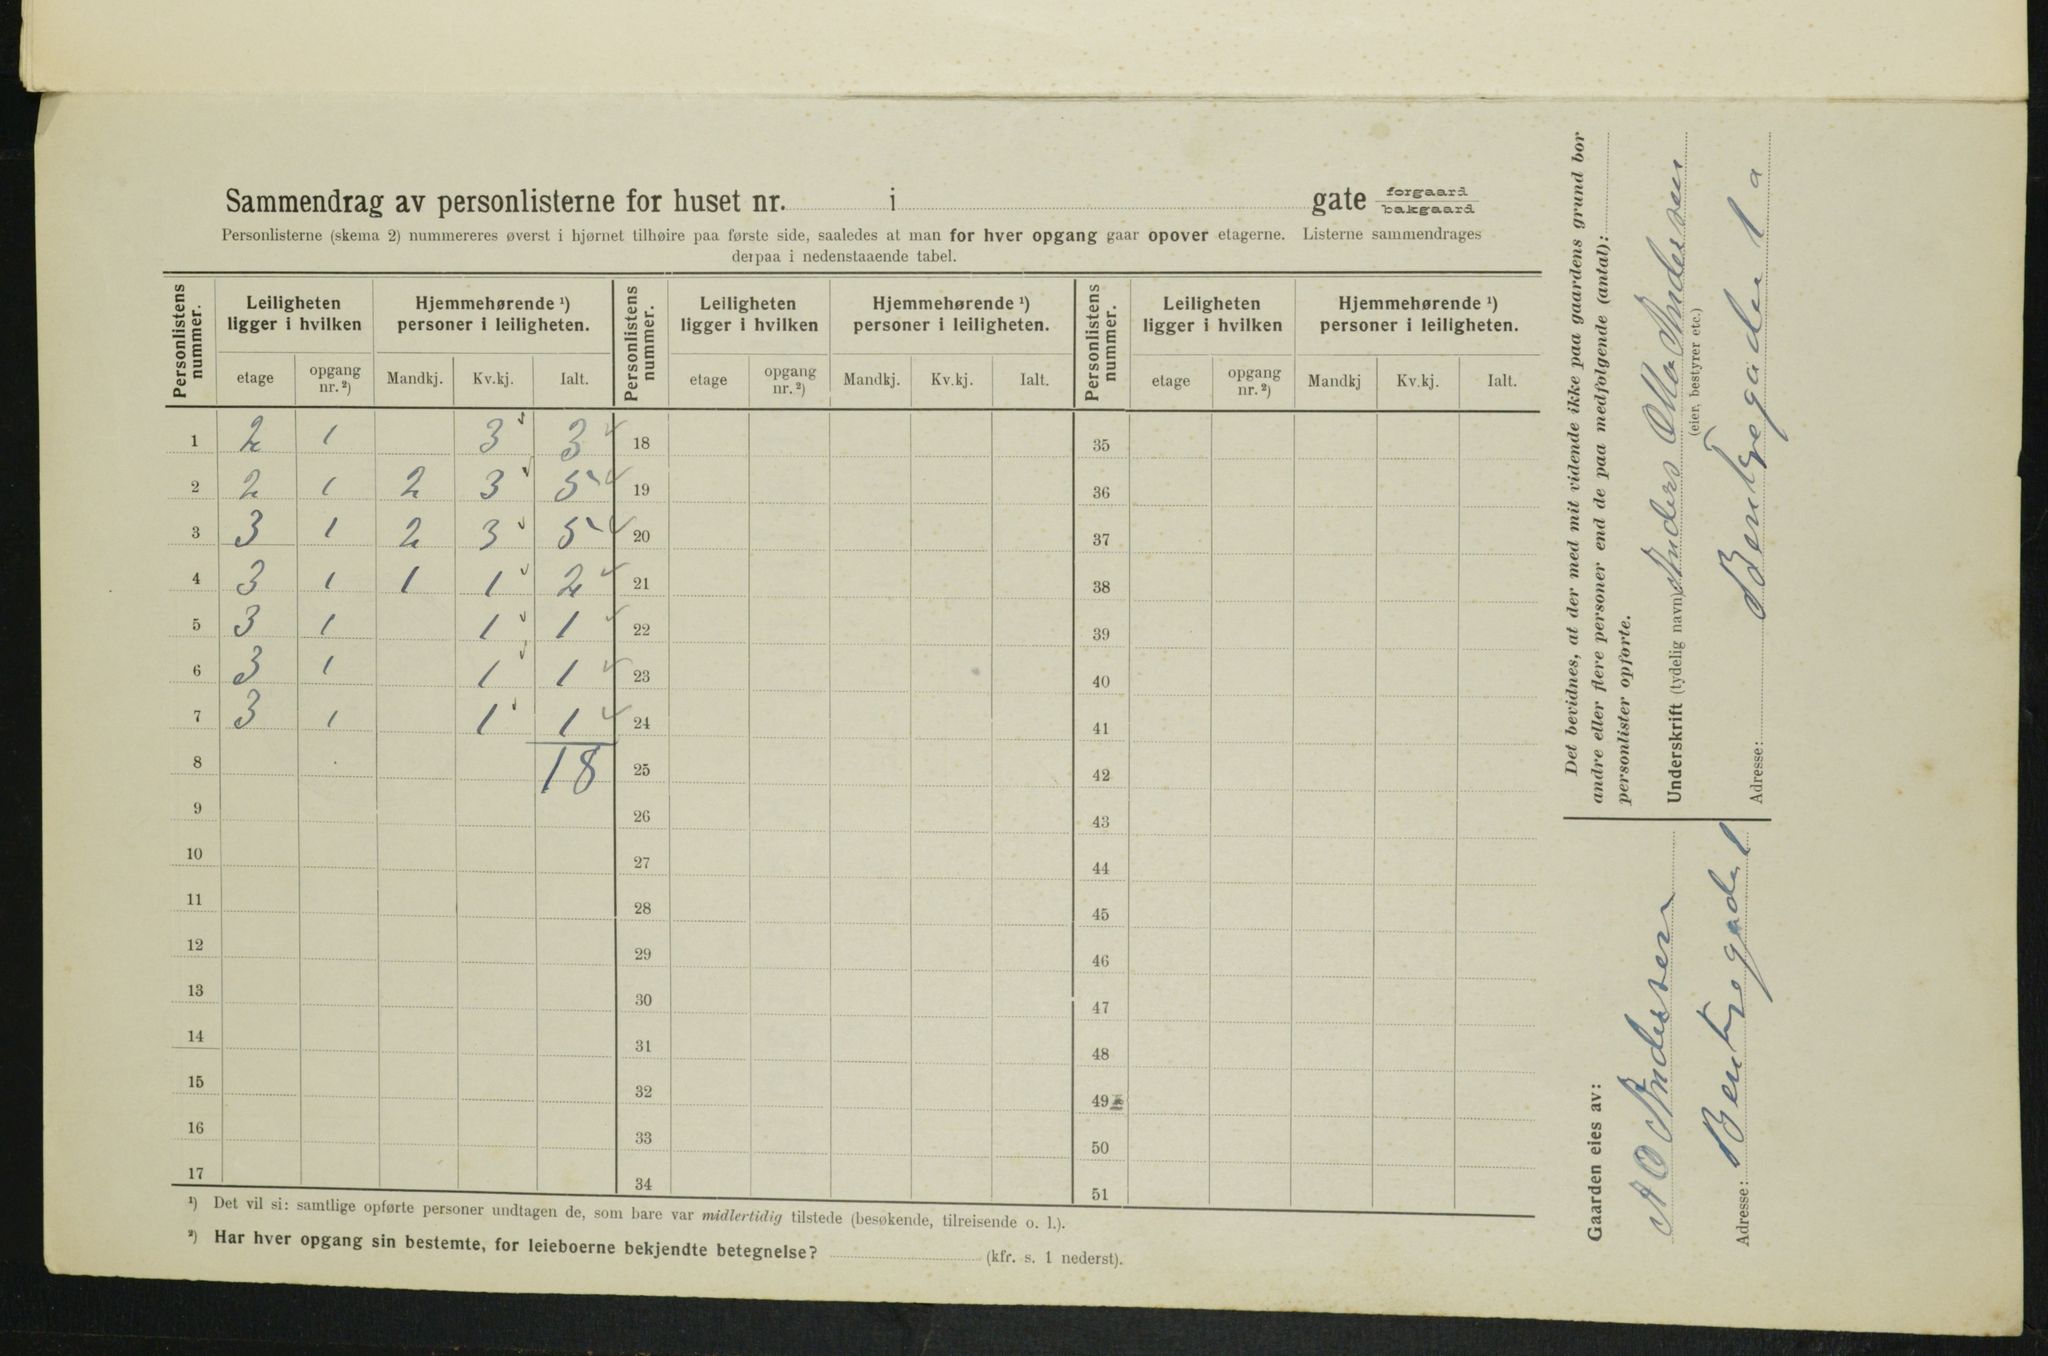 Sammendrag av personlisterne for huset nr. i gate forgaard bakgaard
Personlisterne (skema 2) nummereres øverst i hjørnet tilhøire paa første side, saaledes at man for hver opgang gaar opover etagerne. Listerne sammendrages
derpaa i nedenstaaende tabel.
Personlistens nummer. Leiligheten ligger i hvilken Hjemmehørende ¹) personer i leiligheten. Personlistens nummer. Leiligheten ligger i hvilken Hjemmehørende ¹) personer i leiligheten. Personlistens nummer. Leiligheten ligger i hvilken Hjemmehørende ¹) personer i leiligheten.
etage opgang nr. ²) Mandkj. Kv.kj. Ialt. etage opgang nr. ²) Mandkj. Kv.kj. Ialt. etage opgang nr. ²) Mandkj Kv.kj. Ialt.
1 2 1 3 3 18 35
2 2 1 2 3 5 19 36
3 3 1 2 3 5 20 37
4 3 1 1 1 2 21 38
5 3 1 1 1 22 39
6 3 1 1 1 23 40
7 3 1 1 1 24 41
8 18 25 42
9 26 43
10 27 44
11 28 45
12 29 46
13 30 47
14 31 48
15 32 49
16 33 50
17 34 51
¹) Det vil si: samtlige opførte personer undtagen de, som bare var midlertidig tilstede (besøkende, tilreisende o. l.).
²) Har hver opgang sin bestemte, for leieboerne bekjendte betegnelse? (kfr. s. 1 nederst).
Det bevidnes, at der med mit vidende ikke paa gaardens grund bor
andre eller flere personer end de paa medfølgende (antal):
personlister opførte.
Underskrift (tydelig navn): Anders Otto Andersen
(eier, bestyrer etc.)
Adresse: Bentsegaden 1 a
Gaarden eies av:
A O Andersen
Adresse: Bentsegade 1